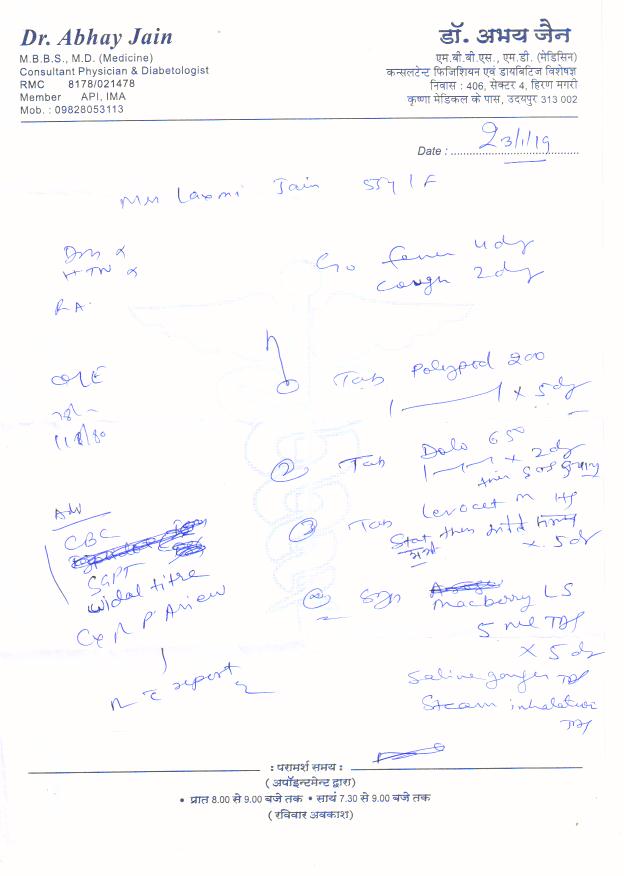 Dr. Abhay Jain
M.B.B.S., M.D. (Medicine)
Consultant Physician & Diabetologist
RMC 8178/021478
Member API, IMA
Mob. : 09828053113
डॉ. अभय जैन
एम.बी.बी.एस., एम.डी. (मेडिसिन)
कन्सलटेन्ट फिजिशियन एवं डायबिटिज विशेषज्ञ
निवास : 406, सेक्टर 4, हिरण मगरी
कृष्णा मेडिकल के पास, उदयपुर 313 002
Date : 23/1/19
Laxmi Jain 55y / F
DM
HTN
RA
fever 4 dy
cough 2 dy
O/E
118/80
① Tab Polypod 200
x 5 dy
② Tab Dolo 650
x 2 dy
then SOS
③ Tab Levocet M
Stat then
x 5 dy
Adv
CBC
SGPT
widal titre
CXR PA view
report
④ Syp Macberry LS
5 ml TDS
x 5 dy
Saline gargles TDS
Steam inhalation
TDS
: परामर्श समय :
( अपॉइन्टमेन्ट द्वारा)
• प्रात 8.00 से 9.00 बजे तक • सायं 7.30 से 9.00 बजे तक
(रविवार अवकाश)